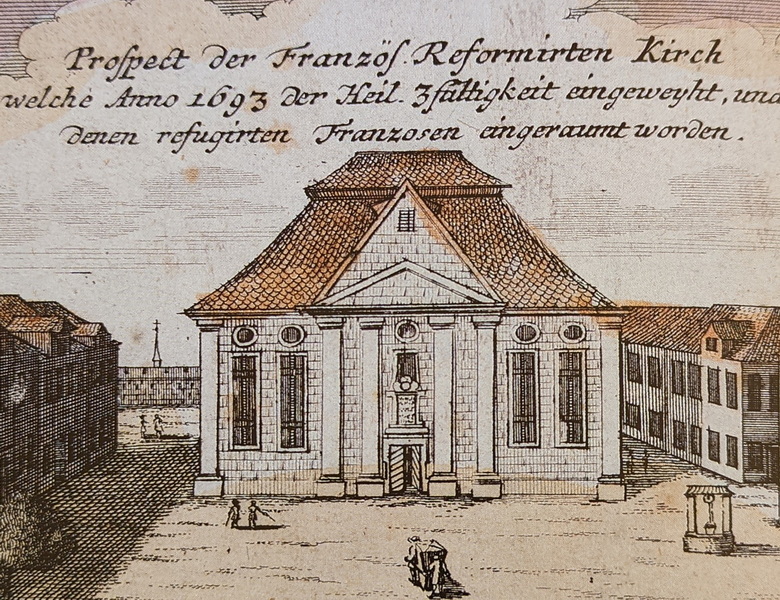 Proſpect der Französ. Reformirten Kirch
welche Anno 1693 der Heil. 3fältigkeit eingeweyht, und
denen refugirten Franzosen eingeraumt worden.